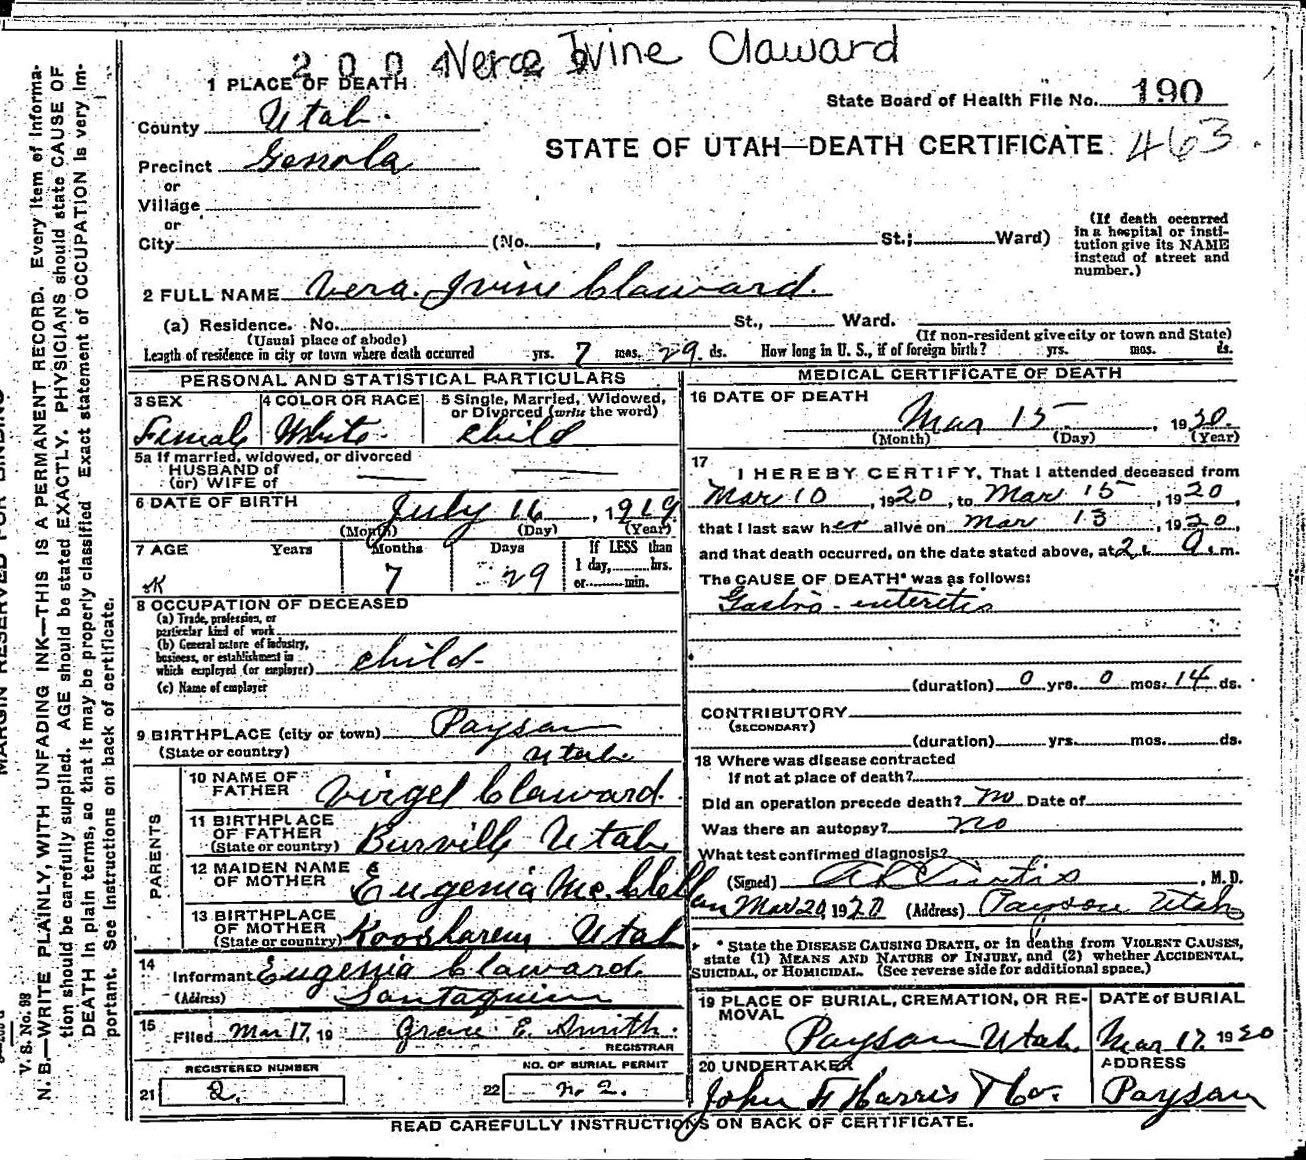 2004
Vera Irvine Claward
1 PLACE OF DEATH
State Board of Health File No. 190
County Utah.
STATE OF UTAH—DEATH CERTIFICATE 463
Precinct Genola
or
Village
or
City (No. , St.; Ward)
(If death occurred in a hospital or institution give its NAME instead of street and number.)
2 FULL NAME Vera Irvine Claward.
(a) Residence. No. St., Ward.
(Usual place of abode) (If non-resident give city or town and State)
Length of residence in city or town where death occurred yrs. 7 mos. 29. ds. How long in U. S., if of foreign birth? yrs. mos. ds.
PERSONAL AND STATISTICAL PARTICULARS
3 SEX
Female
4 COLOR OR RACE
White
5 Single, Married, Widowed, or Divorced (write the word)
Child
5a If married, widowed, or divorced
HUSBAND of
(or) WIFE of
6 DATE OF BIRTH
July 16, 1919
(Month) (Day) (Year)
7 AGE Years Months Days If LESS than
1 day, hrs.
or min.
7 29
8 OCCUPATION OF DECEASED
(a) Trade, profession, or particular kind of work
(b) General nature of industry, business, or establishment in which employed (or employer) child
(c) Name of employer
9 BIRTHPLACE (city or town) Payson
(State or country) Utah
PARENTS
10 NAME OF FATHER Virgel Claward.
11 BIRTHPLACE OF FATHER (State or country) Burville Utah
12 MAIDEN NAME OF MOTHER Eugenia McClellan
13 BIRTHPLACE OF MOTHER (State or country) Koosharem Utah
14 Informant Eugenia Claward.
(Address) Santaquin
15 Filed Mar 17, 19 Grace E. Smith.
REGISTRAR
REGISTERED NUMBER
21 2.
NO. OF BURIAL PERMIT
22 No. 2.
MEDICAL CERTIFICATE OF DEATH
16 DATE OF DEATH
Mar 15, 1920.
(Month) (Day) (Year)
17 I HEREBY CERTIFY, That I attended deceased from
Mar 10, 1920, to Mar 15, 1920,
that I last saw her alive on Mar 13, 1920,
and that death occurred, on the date stated above, at 2 a.m.
The CAUSE OF DEATH* was as follows:
Gastro-enteretis
(duration) 0 yrs. 0 mos. 14 ds.
CONTRIBUTORY
(SECONDARY)
(duration) yrs. mos. ds.
18 Where was disease contracted
If not at place of death?
Did an operation precede death? No Date of
Was there an autopsy? No
What test confirmed diagnosis?
(Signed) A L Curtis, M. D.
Mar 20, 1920 (Address) Payson Utah
* State the DISEASE CAUSING DEATH, or in deaths from VIOLENT CAUSES,
state (1) MEANS AND NATURE OF INJURY, and (2) whether ACCIDENTAL,
SUICIDAL, or HOMICIDAL. (See reverse side for additional space.)
19 PLACE OF BURIAL, CREMATION, OR REMOVAL
Payson Utah.
DATE of BURIAL
Mar 17, 1920
20 UNDERTAKER
John F Harris & Co.
ADDRESS
Payson
READ CAREFULLY INSTRUCTIONS ON BACK OF CERTIFICATE.
MARGIN RESERVED FOR BINDING
V. S. No. 98
N. B.—WRITE PLAINLY, WITH UNFADING INK—THIS IS A PERMANENT RECORD. Every item of informa-
tion should be carefully supplied. AGE should be stated EXACTLY. PHYSICIANS should state CAUSE OF
DEATH in plain terms, so that it may be properly classified. Exact statement of OCCUPATION is very im-
portant. See instructions on back of certificate.